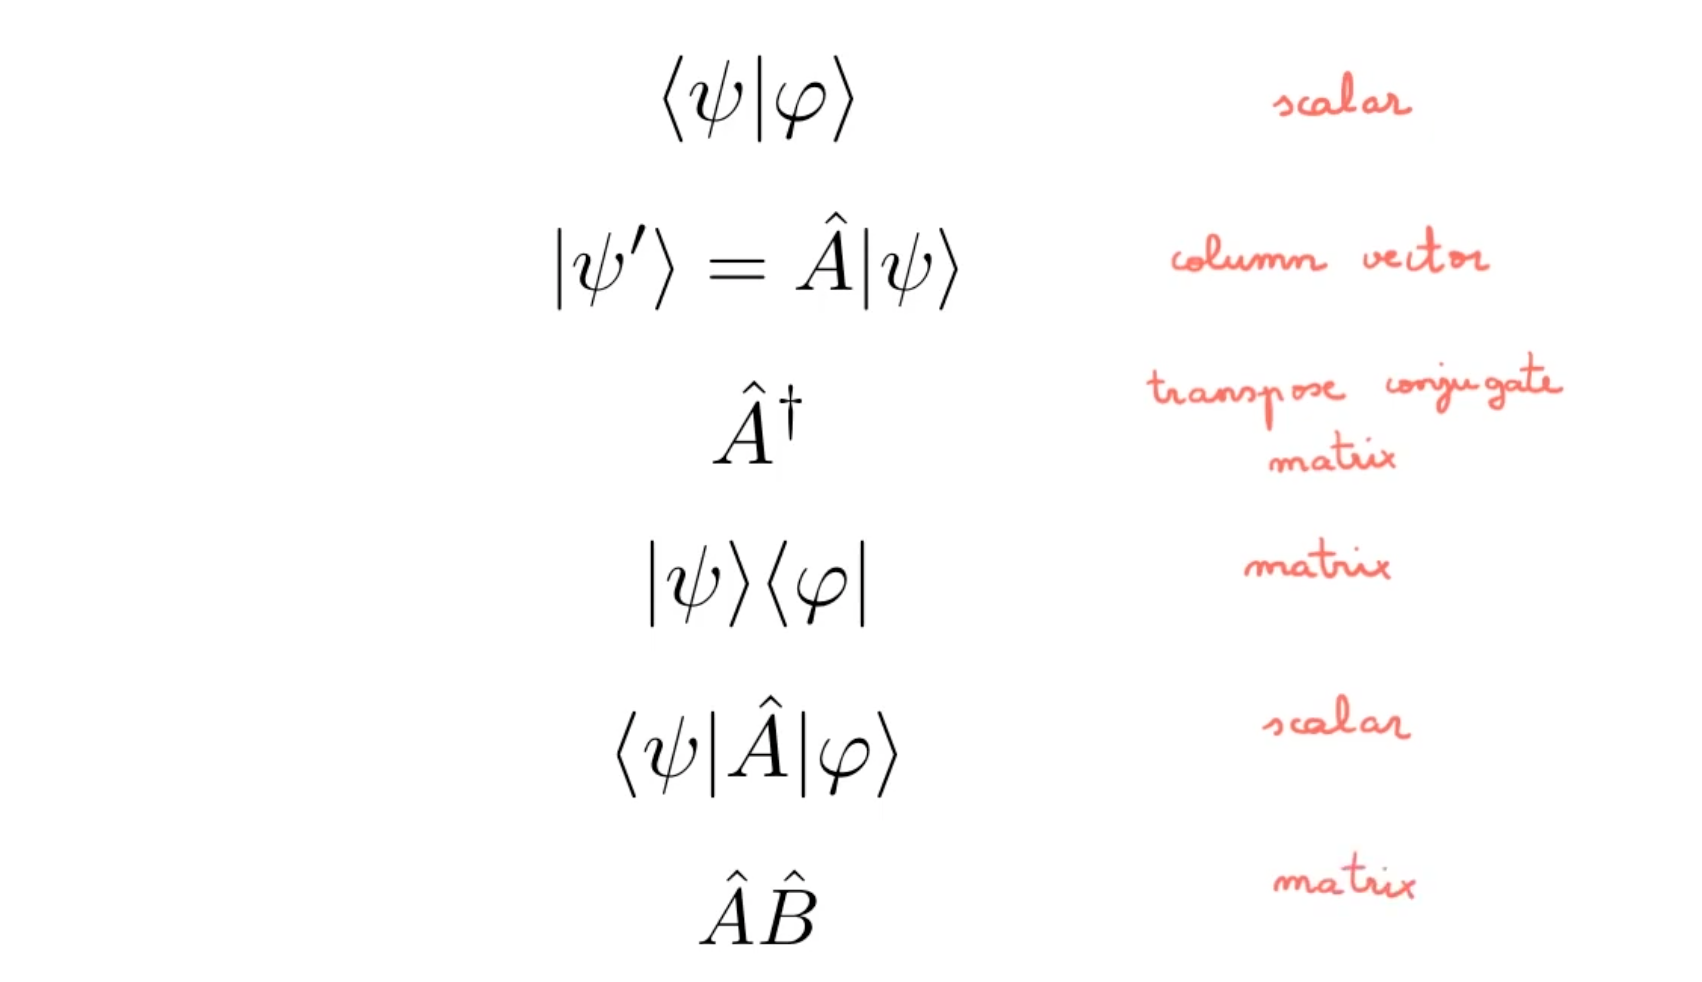 ⟨ψ|φ⟩ scalar
|ψ′⟩ = Â|ψ⟩ column vector
Â† transpose conjugate
matrix
|ψ⟩⟨φ| matrix
⟨ψ|Â|φ⟩ scalar
ÂB̂ matrix